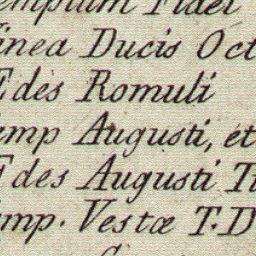 emplum Fidei
inea Ducis Oct
Ædes Romuli
emp Augusti, et
Ædes Augusti Ti
emp. Vestæ T. D